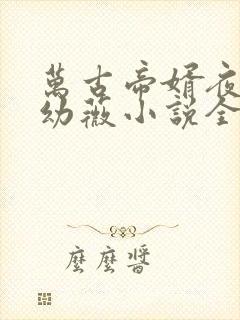 萬古帝婿夜
幼薇小說全
麼麼醬